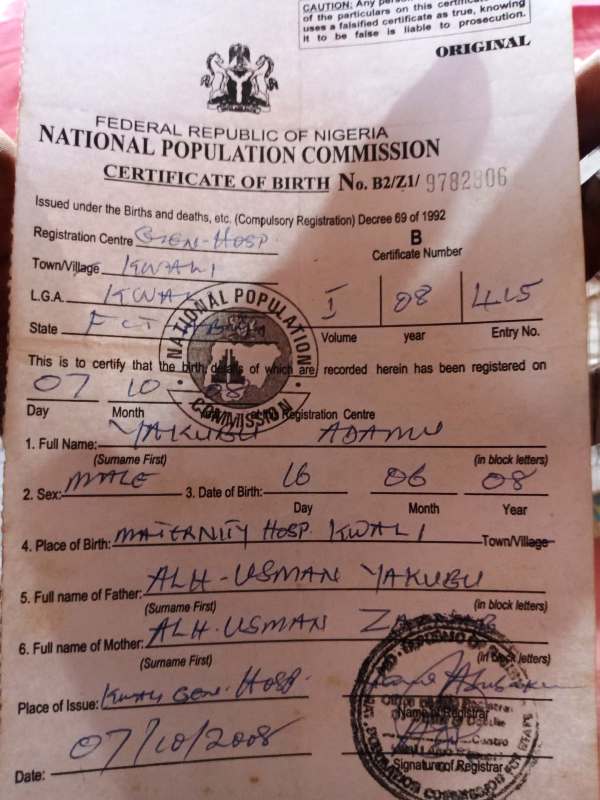 CAUTION: Any person
of the particulars on this certificate
uses a falsified certificate as true, knowing
it to be false is liable to prosecution.
ORIGINAL
FEDERAL REPUBLIC OF NIGERIA
NATIONAL POPULATION COMMISSION
CERTIFICATE OF BIRTH No. B2/Z1/ 9782306
Issued under the Births and deaths, etc. (Compulsory Registration) Decree 69 of 1992
Registration Centre GEN-HOSP. B
Certificate Number
Town/Village KWALI
L.G.A. I 08 415
State FCT Volume year Entry No.
NATIONAL POPULATION COMMISSION
This is to certify that the birth, details of which are recorded herein has been registered on
07 10 08
Day Month Registration Centre
1. Full Name: YAKUBU ADAMU
(Surname First) (in block letters)
2. Sex: MALE 3. Date of Birth: 16 06 08
Day Month Year
4. Place of Birth: MATERNITY HOSP. KWALI Town/Village
5. Full name of Father: ALH-USMAN YAKUBU
(Surname First) (in block letters)
6. Full name of Mother: ALH-USMAN
(Surname First) (in block letters)
Place of Issue: Kwali Gen. Hosp.
Name of Registrar
Date: 07/10/2008 Signature of Registrar